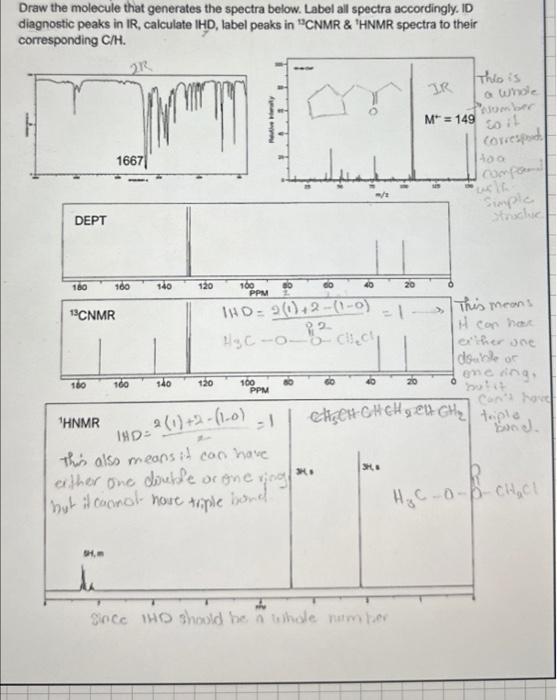 Draw the molecule that generates the spectra below. Label all spectra accordingly. ID
diagnostic peaks in IR, calculate IHD, label peaks in ¹³CNMR & ¹HNMR spectra to their
corresponding C/H.
IR
1667
IR
O
M⁺ = 149
Relative Intensity
100
80
60
40
20
0
25 50 75 100 125 150
m/z
This is
a whole
number
so it
correspond
to a
compound
with
simple
structure
DEPT
180 160 140 120 100 80 60 40 20 0
PPM
¹³CNMR
IHD = 2(1)+2-(1-0) = 1
2
H₃C-O-
180 160 140 120 100 80 60 40 20 0
PPM
This means
it can have
either one
double or
one ring,
but it
can't have
triple
bond.
¹HNMR
IHD = 2(1)+2-(1-0) = 1
2
This also means it can have
either one double or one ring
but it cannot have triple bond
3H, s
3H, s
5H, m
H₃C-O-
Since IHD should be a whole number